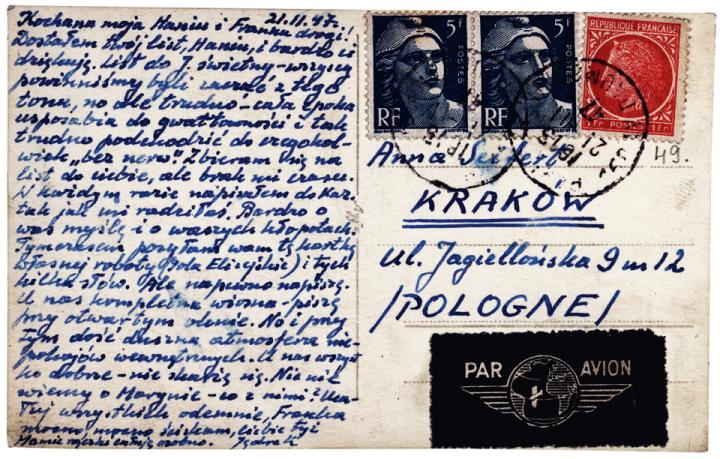 21.11.47.
Kochana moja Haniu i Franku drogi!
Dostałem twój list, Haniu, i bardzo ci
dziękuję. List do J. świetny - wszyscy
powinniśmy byli zacząć z tego
tona, no ale trudno - cała epoka
usposabia do gwałtowności i tak
trudno podchodzić do czegokol-
wiek „bez nerw". Zbieram się na
list do ciebie, ale brak mi czasu.
W każdym razie napisałem do Kaz.
tak jak mi radziłaś. Bardzo o
was myślę i o waszych kłopotach.
Tymczasem posyłam wam tę kartkę
własnej roboty (Pola Elizejskie) i tych
kilka słów. Ale na pewno napiszę.
U nas kompletna wiosna - piszę
przy otwartym oknie. No i przy
tym dość duszna atmosfera nie-
pokojów wewnętrznych. U nas wszyst-
ko dobrze - nie skarżą się. Nic nie
wiemy o Marynie - co z nimi?
wszystkich odemnie, Franka
mocno, mocno ściskam, ciebie też
całuję osobno. Jędrek
5F
POSTES
RF
5F
POSTES
RF
REPUBLIQUE FRANÇAISE
POSTES 1Fr
49.
Anna Seifert
KRAKÓW
ul. Jagiellońska 9 m 12
/POLOGNE/
PAR AVION